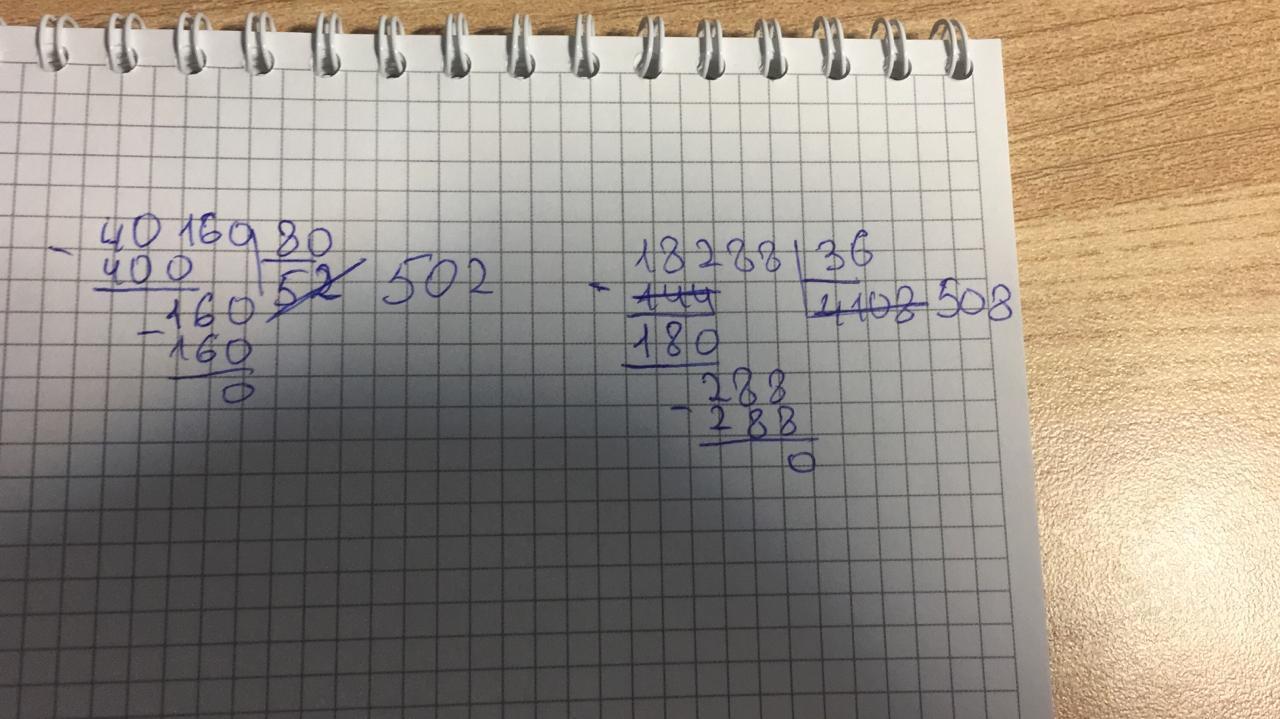 - 40160 80
400 52 502
- 160
160
0
- 18288 36
144 4108 508
180
- 288
288
0